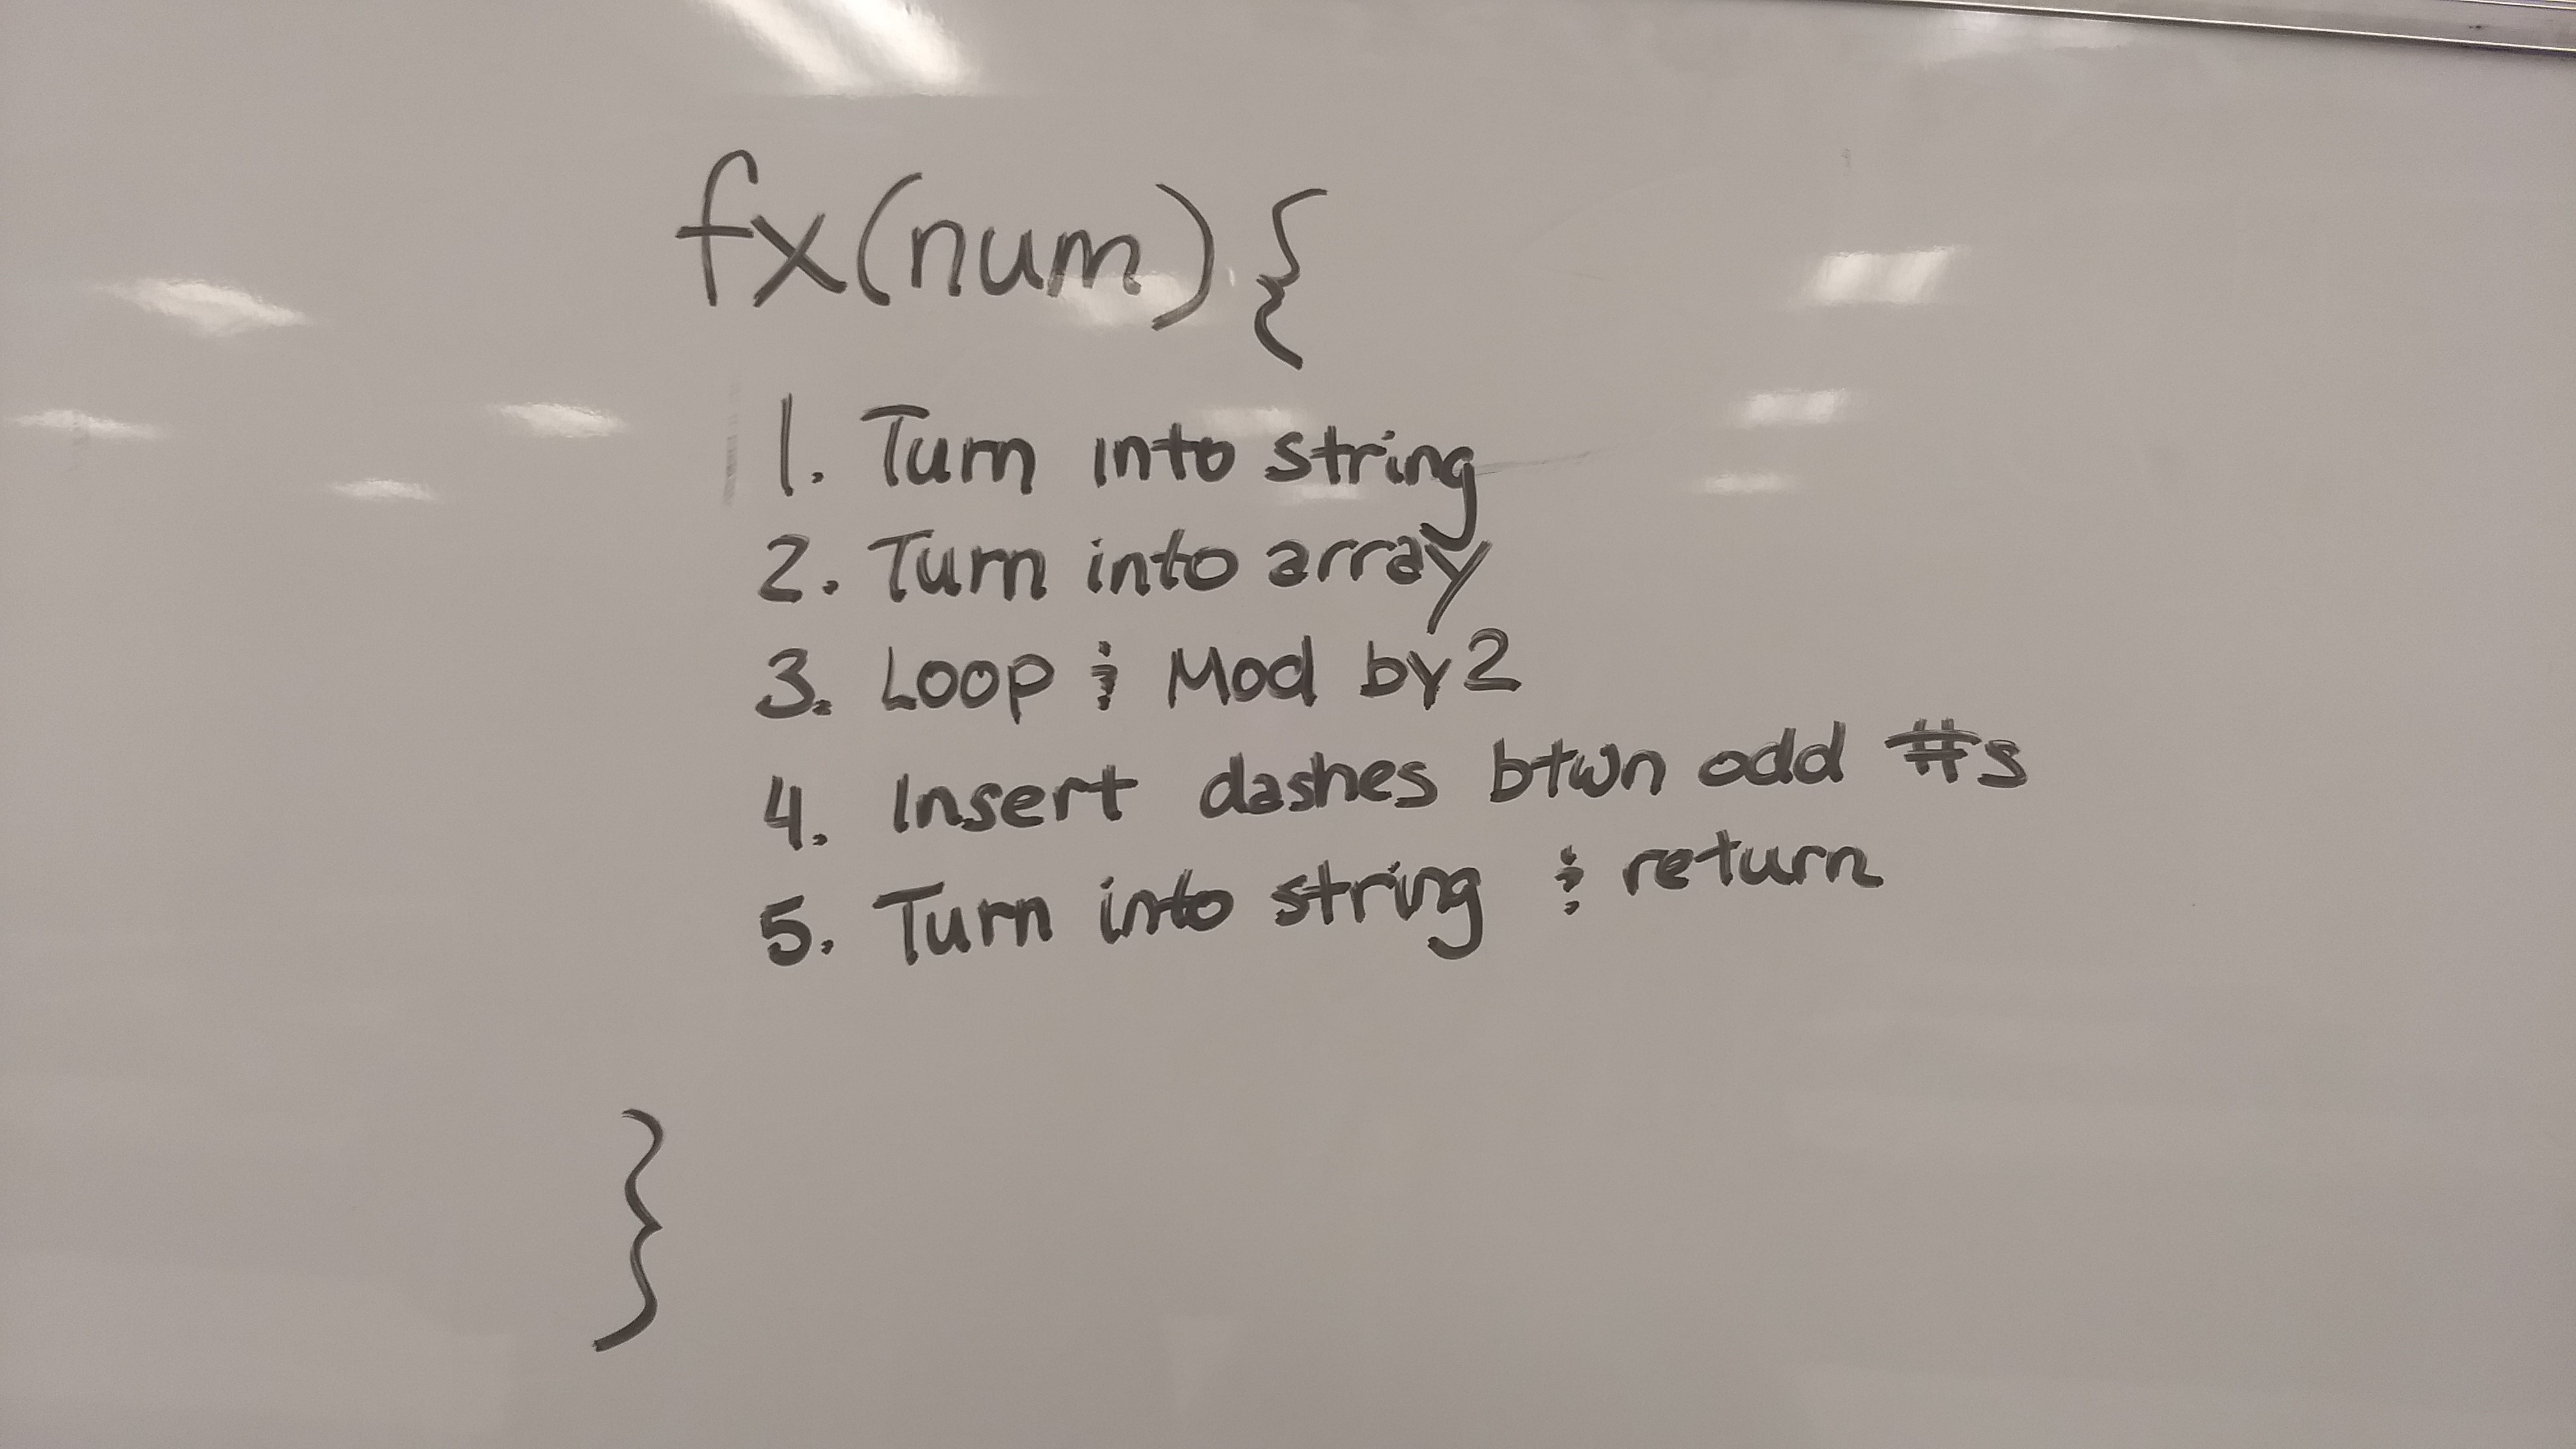 fx(num) {
1. Turn into string
2. Turn into array
3. Loop & Mod by 2
4. Insert dashes btwn odd #s
5. Turn into string & return
}